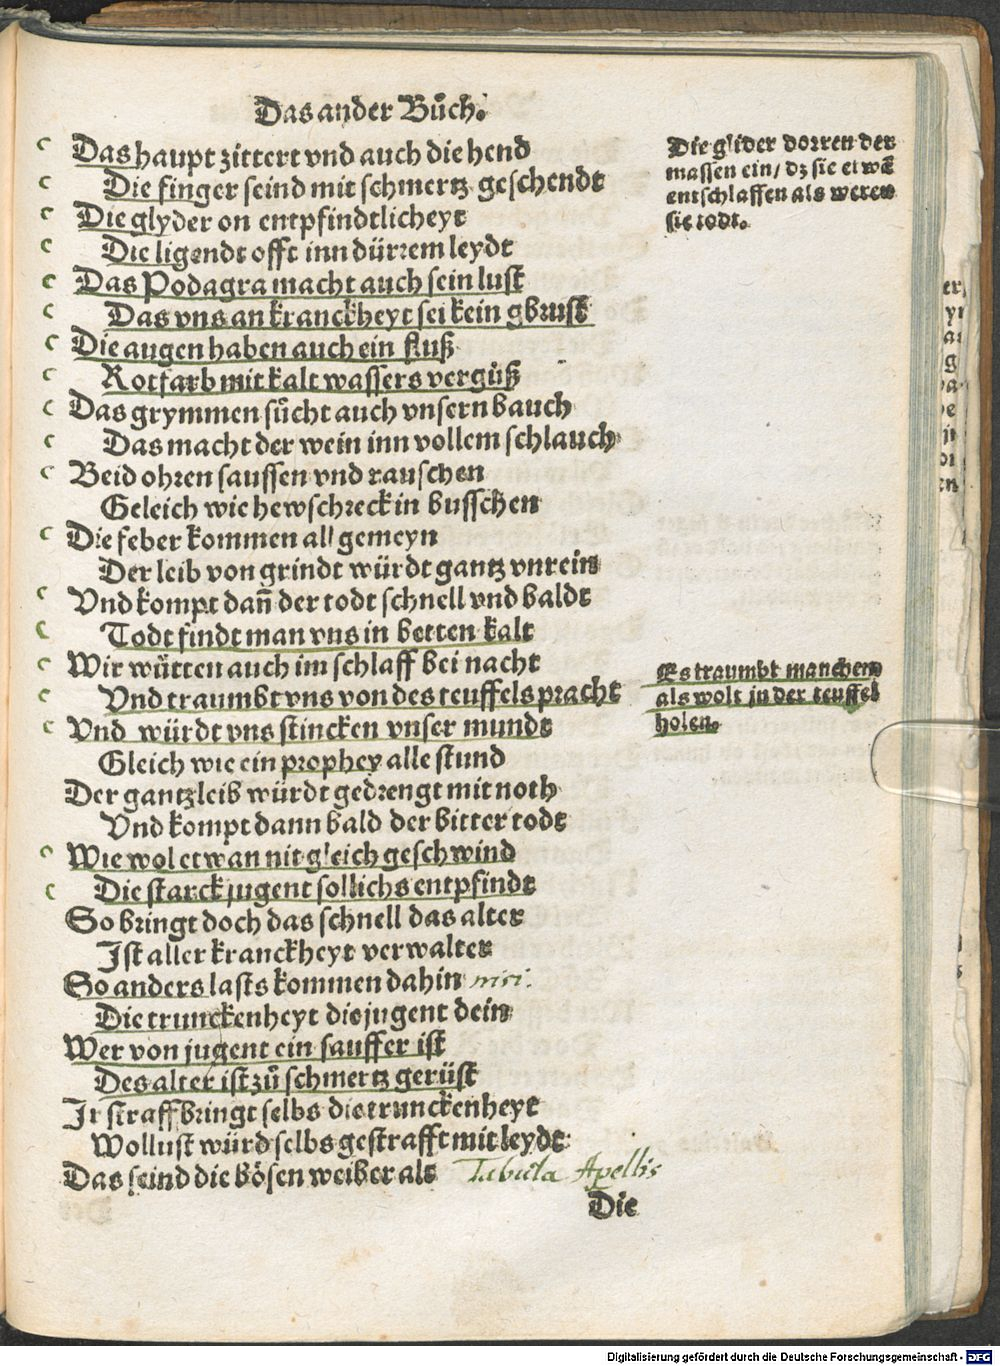 Das ander Bůch.
Das haupt zittert vnd auch die hend
Die finger seind mit schmertz geschendt
Die glyder on entpfindtlicheyt
Die ligendt offt inn dürrem leydt
Das Podagra macht auch sein lust
Das vns an kranckheyt sei kein gbrust
Die augen haben auch ein fluß
Rotfarb mit kalt wassers vergüß
Das grymmen sůcht auch vnsern bauch
Das macht der wein inn vollem schlauch
Beid ohren saussen vnd rauschen
Geleich wie hewschreck in busschen
Die feber kommen all gemeyn
Der leib von grindt würdt gantz vnrein
Vnd kompt dañ der todt schnell vnd baldt
Todt findt man vns in betten kalt
Wir wütten auch im schlaff bei nacht
Vnd traumbt vns von des teuffels pracht
Vnd würdt vns stincken vnser mundt
Gleich wie ein prophey alle stund
Der gantz leib würdt gedrengt mit noth
Vnd kompt dann bald der bitter todt
Wie wol etwan nit gleich geschwind
Die starck jugent sollichs entpfindt
So bringt doch das schnell das alter
Ist aller kranckheyt verwalter
So anders lasts kommen dahin nisi.
Die trunckenheyt die jugent dein
Wer von jugent ein sauffer ist
Des alter ist zů schmertz gerüst
Ir straff bringt selbs die trunckenheyt
Wollust würd selbs gestrafft mit leydt
Das seind die bösen weiber als Tabula Apellis
Die
Die glider dorren der
massen ein/ dz sie etwã
entschlaffen als weren
sie todt.
Es traumbt manchem
als wolt jn der teuffel
holen.
Digitalisierung gefördert durch die Deutsche Forschungsgemeinschaft - DFG